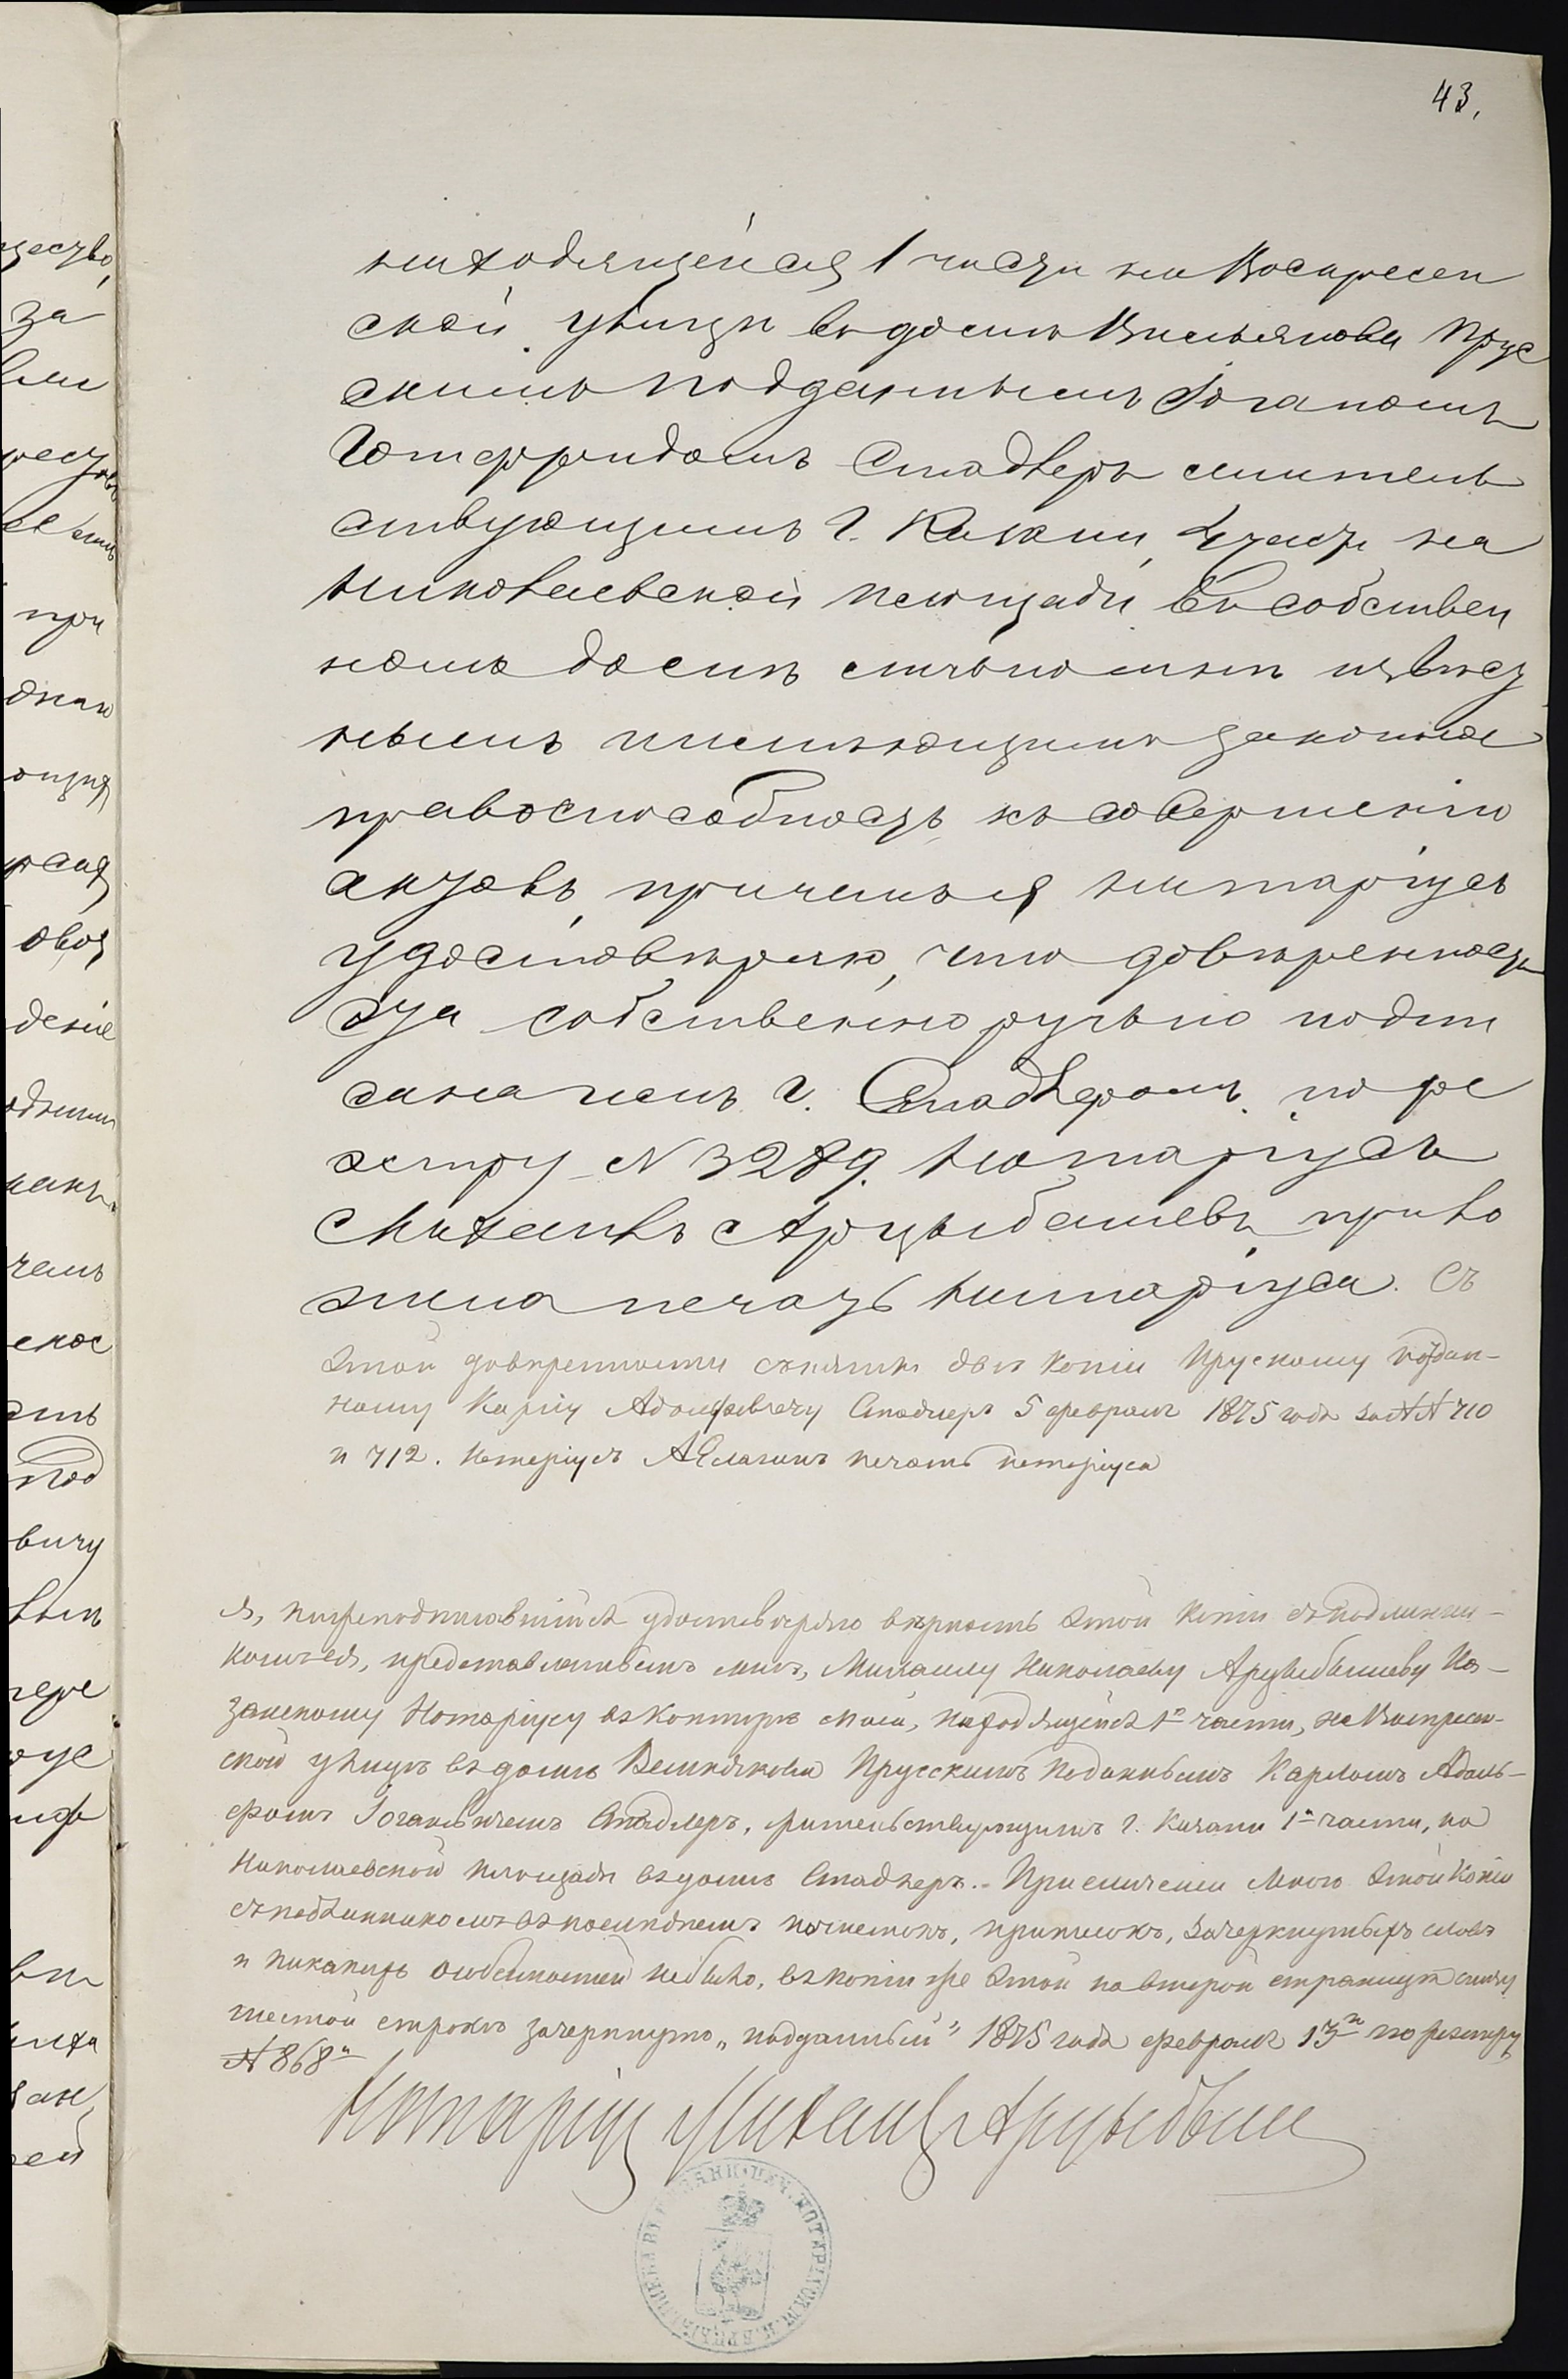 43.
находящейся 1 части на Воскресен
ской улицѣ въ домѣ Вислянова Прус
скимъ подданнымъ Іоганомъ
Готтфридомъ Стадлеръ жительствующимъ
ствующимъ г. Казани, 4 части на
Николаевской площади въ собствен
номъ домѣ лично мнѣ извѣст
нымъ имѣющимъ законную
правоспособность къ совершенію
актовъ, причемъ я нотаріусъ
удостовѣряю, что довѣренность
эта собственноручно подпи
сана имъ г. Стадлеромъ. по ре
эстру N 3289. Нотаріусъ
Михаилъ Арцыбашевъ, прило
жена печать нотаріуса. Съ
этой довѣренности сняты двѣ копіи Прускому поддан-
ному Карлу Адольфовичу Стадлеръ 5 февраля 1875 года за №№ 710
и 712. Нотаріусъ А Елагинъ печать нотаріуса
Я, нижеподписавшійся удостовѣряю вѣрность этой копіи съ подлинни-
комъ ея, представленнымъ мнѣ, Михаилу Николаеву Арцыбышеву Ка-
занскому Нотаріусу въ конторѣ моей, находящейся 1й части, на Воскресен-
ской улицѣ въ домѣ Прусскимъ подданнымъ Карломъ Адоль-
фомъ Іогановичемъ Стадлеръ, жительствующимъ г. Казани 1й части, на
Николаевской площади въ домѣ Стадлеръ. - При сличеніи мною этой копіи
съ подлинникомъ въ послѣднемъ почистокъ, приписокъ, зачеркнутыхъ словъ
и никакихъ особенностей не было, въ копіи же этой на второй страницѣ снизу
шестой строкѣ зачеркнуто „подданный" 1875 года февраля 13го по реэстру
№ 868й
Нотаріусъ Михаилъ Арцыбыше